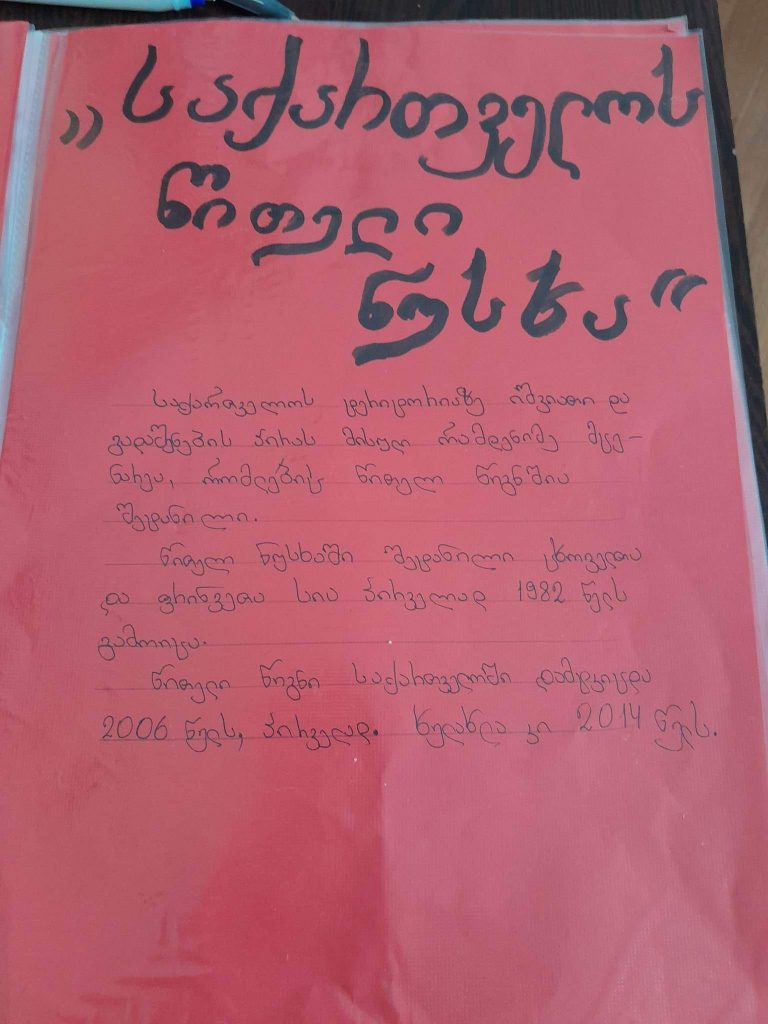 „საქართველოს
წითელი
ნუსხა“
საქართველოს ტერიტორიაზე იშვიათი და
გადაშენების პირას მისული რამდენიმე მცე-
ნარეა, რომლების წითელ წიგნშია
შეტანილი.
წითელ ნუსხაში შეტანილი ცხოველთა
და ფრინველთა სია პირველად 1982 წელს
გამოიცა.
წითელი წიგნი საქართველოში დამტკიცდა
2006 წელს, პირველად. ხელახლა კი 2014 წელს.